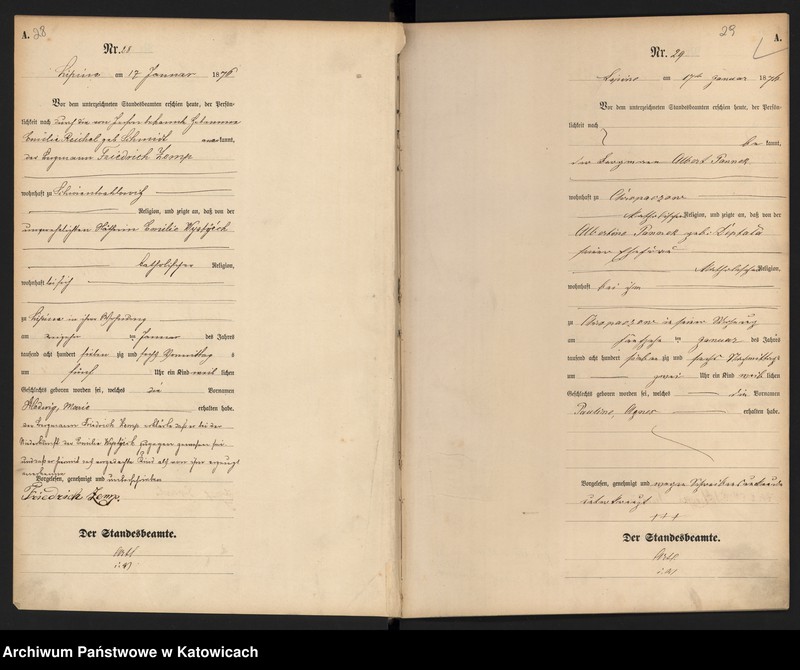 A. 28
Nr. 28
Lipine am 17 Januar 1876
Vor dem unterzeichneten Standesbeamten erschien heute, der Persön-
lichkeit nach durch die von Person bekannte Hebamme
Emilie Reichel geb. Schmidt kannt,
der Bergmann Friedrich Zemp
wohnhaft zu
Religion, und zeigte an, daß von der
unverehelichten Emilie
katholischer Religion,
wohnhaft
zu Lipine in ihrer Behausung
am ten Januar des Jahres
tausend acht hundert sieben zig und sechs Vormittag s
um fünf Uhr ein Kind weib lichen
Geschlechts geboren worden sei, welches die Vornamen
Hedwig, Marie erhalten habe.
Der Bergmann Friedrich Zemp erklärte daß er bei der
Niederkunft der Emilie zugegen gewesen sei
Kind als von ihm erzeugt
anerkenne
Vorgelesen, genehmigt und unterschrieben
Friedrich Zemp.
Der Standesbeamte.
29
A.
Nr. 29
Lipine am 17ten Januar 1876
Vor dem unterzeichneten Standesbeamten erschien heute, der Persön-
lichkeit nach
be kannt,
der Bergmann Albert Pannek
wohnhaft zu Chropaczow
katholischer Religion, und zeigte an, daß von der
Albertine Pannek geb.
seiner Ehefrau
katholischer Religion,
wohnhaft bei ihm
zu Chropaczow in seiner Wohnung
am ten Januar des Jahres
tausend acht hundert sieben zig und sechs Nachmittags
um zwei Uhr ein Kind weib lichen
Geschlechts geboren worden sei, welches die Vornamen
Pauline, Agnes erhalten habe.
Vorgelesen, genehmigt und wegen Schreibensunkunde
unterkreuzt
+++
Der Standesbeamte.
Archiwum Państwowe w Katowicach